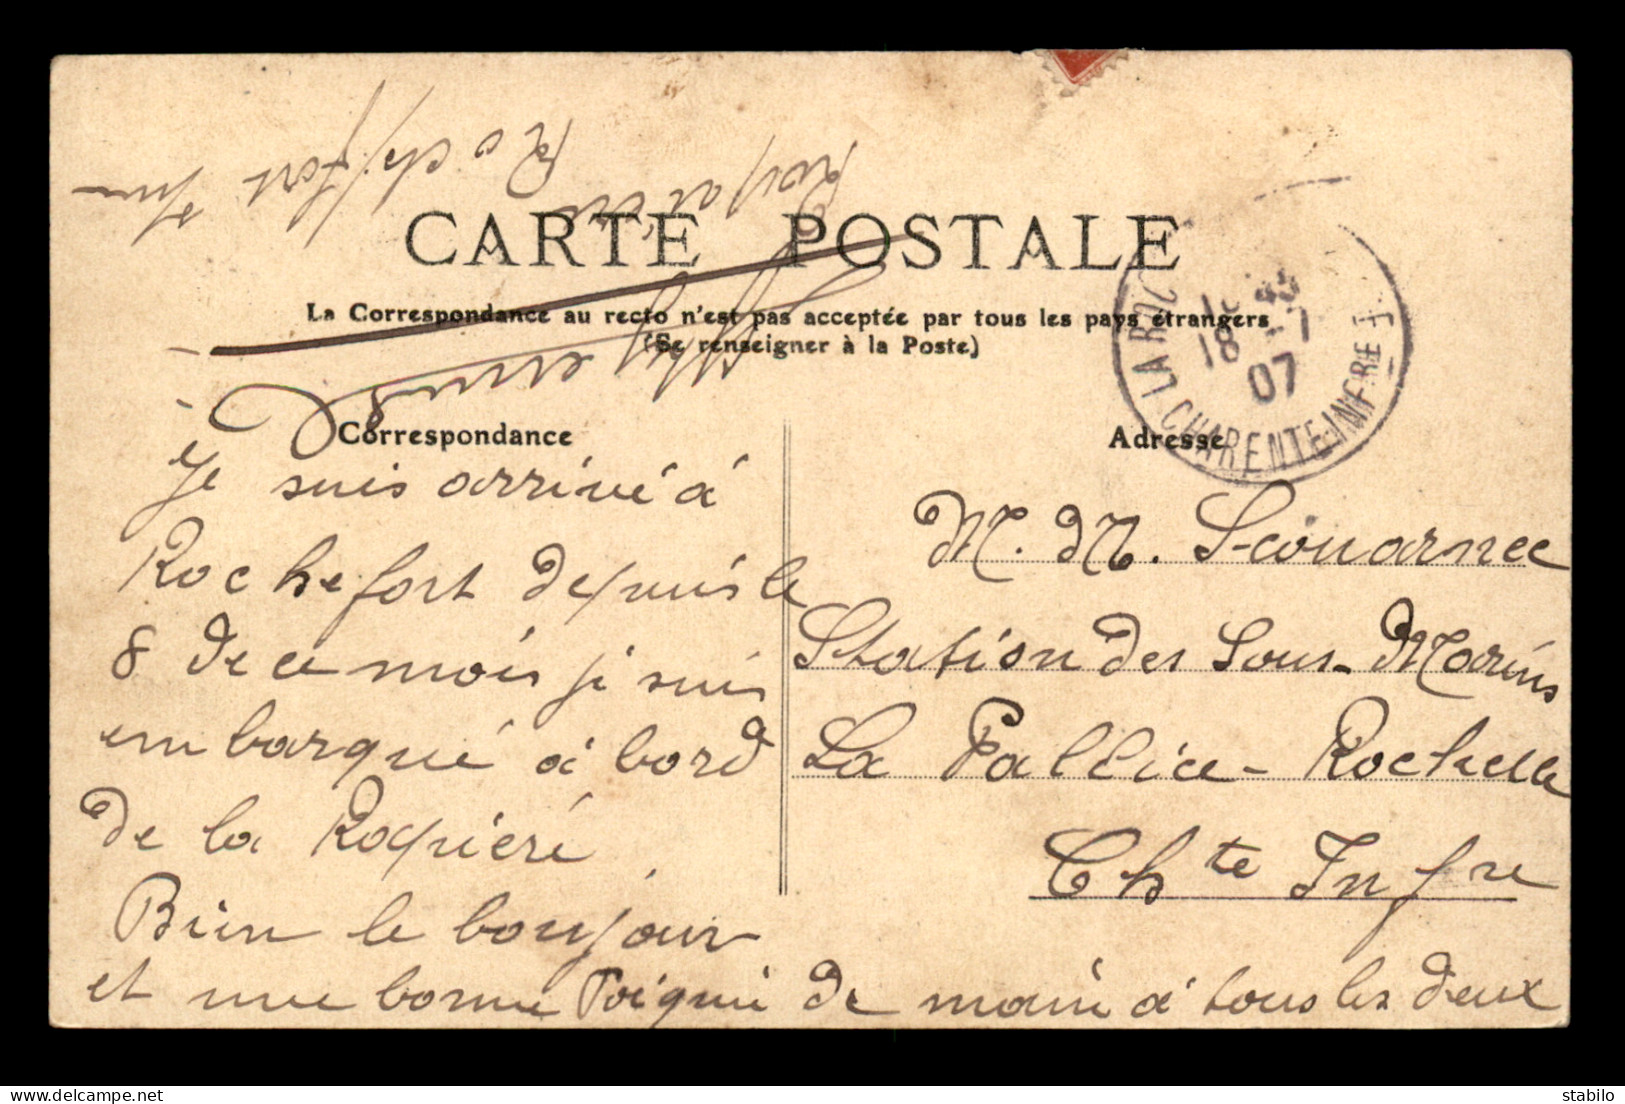 CARTE POSTALE
La Correspondance au recto n'est pas acceptée par tous les pays étrangers
(Se renseigner à la Poste)
Correspondance
Je suis arrivé à
Rochefort depuis le
8 de ce mois je suis
embarqué à bord
de la Rapiéré
Bien le bonjour
et une bonne Poignié de main à tous les deux
Rochefort
Adresse
M. M. Scouarnec
Station des Sous-Marins
La Pallice-Rochelle
Chte Infre
18 -7
07
CHARENTE-INFRE
stabilo